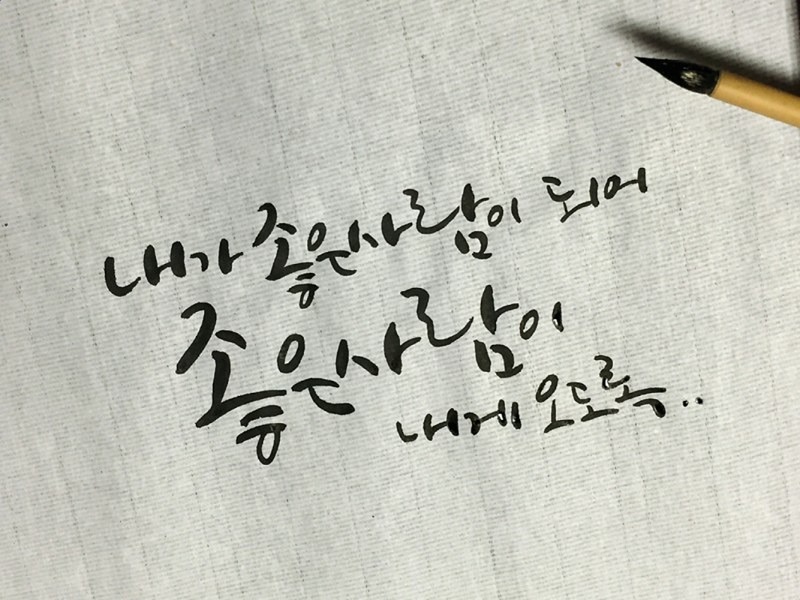 내가 좋은사람이 되어
좋은사람이
내게 오도록..